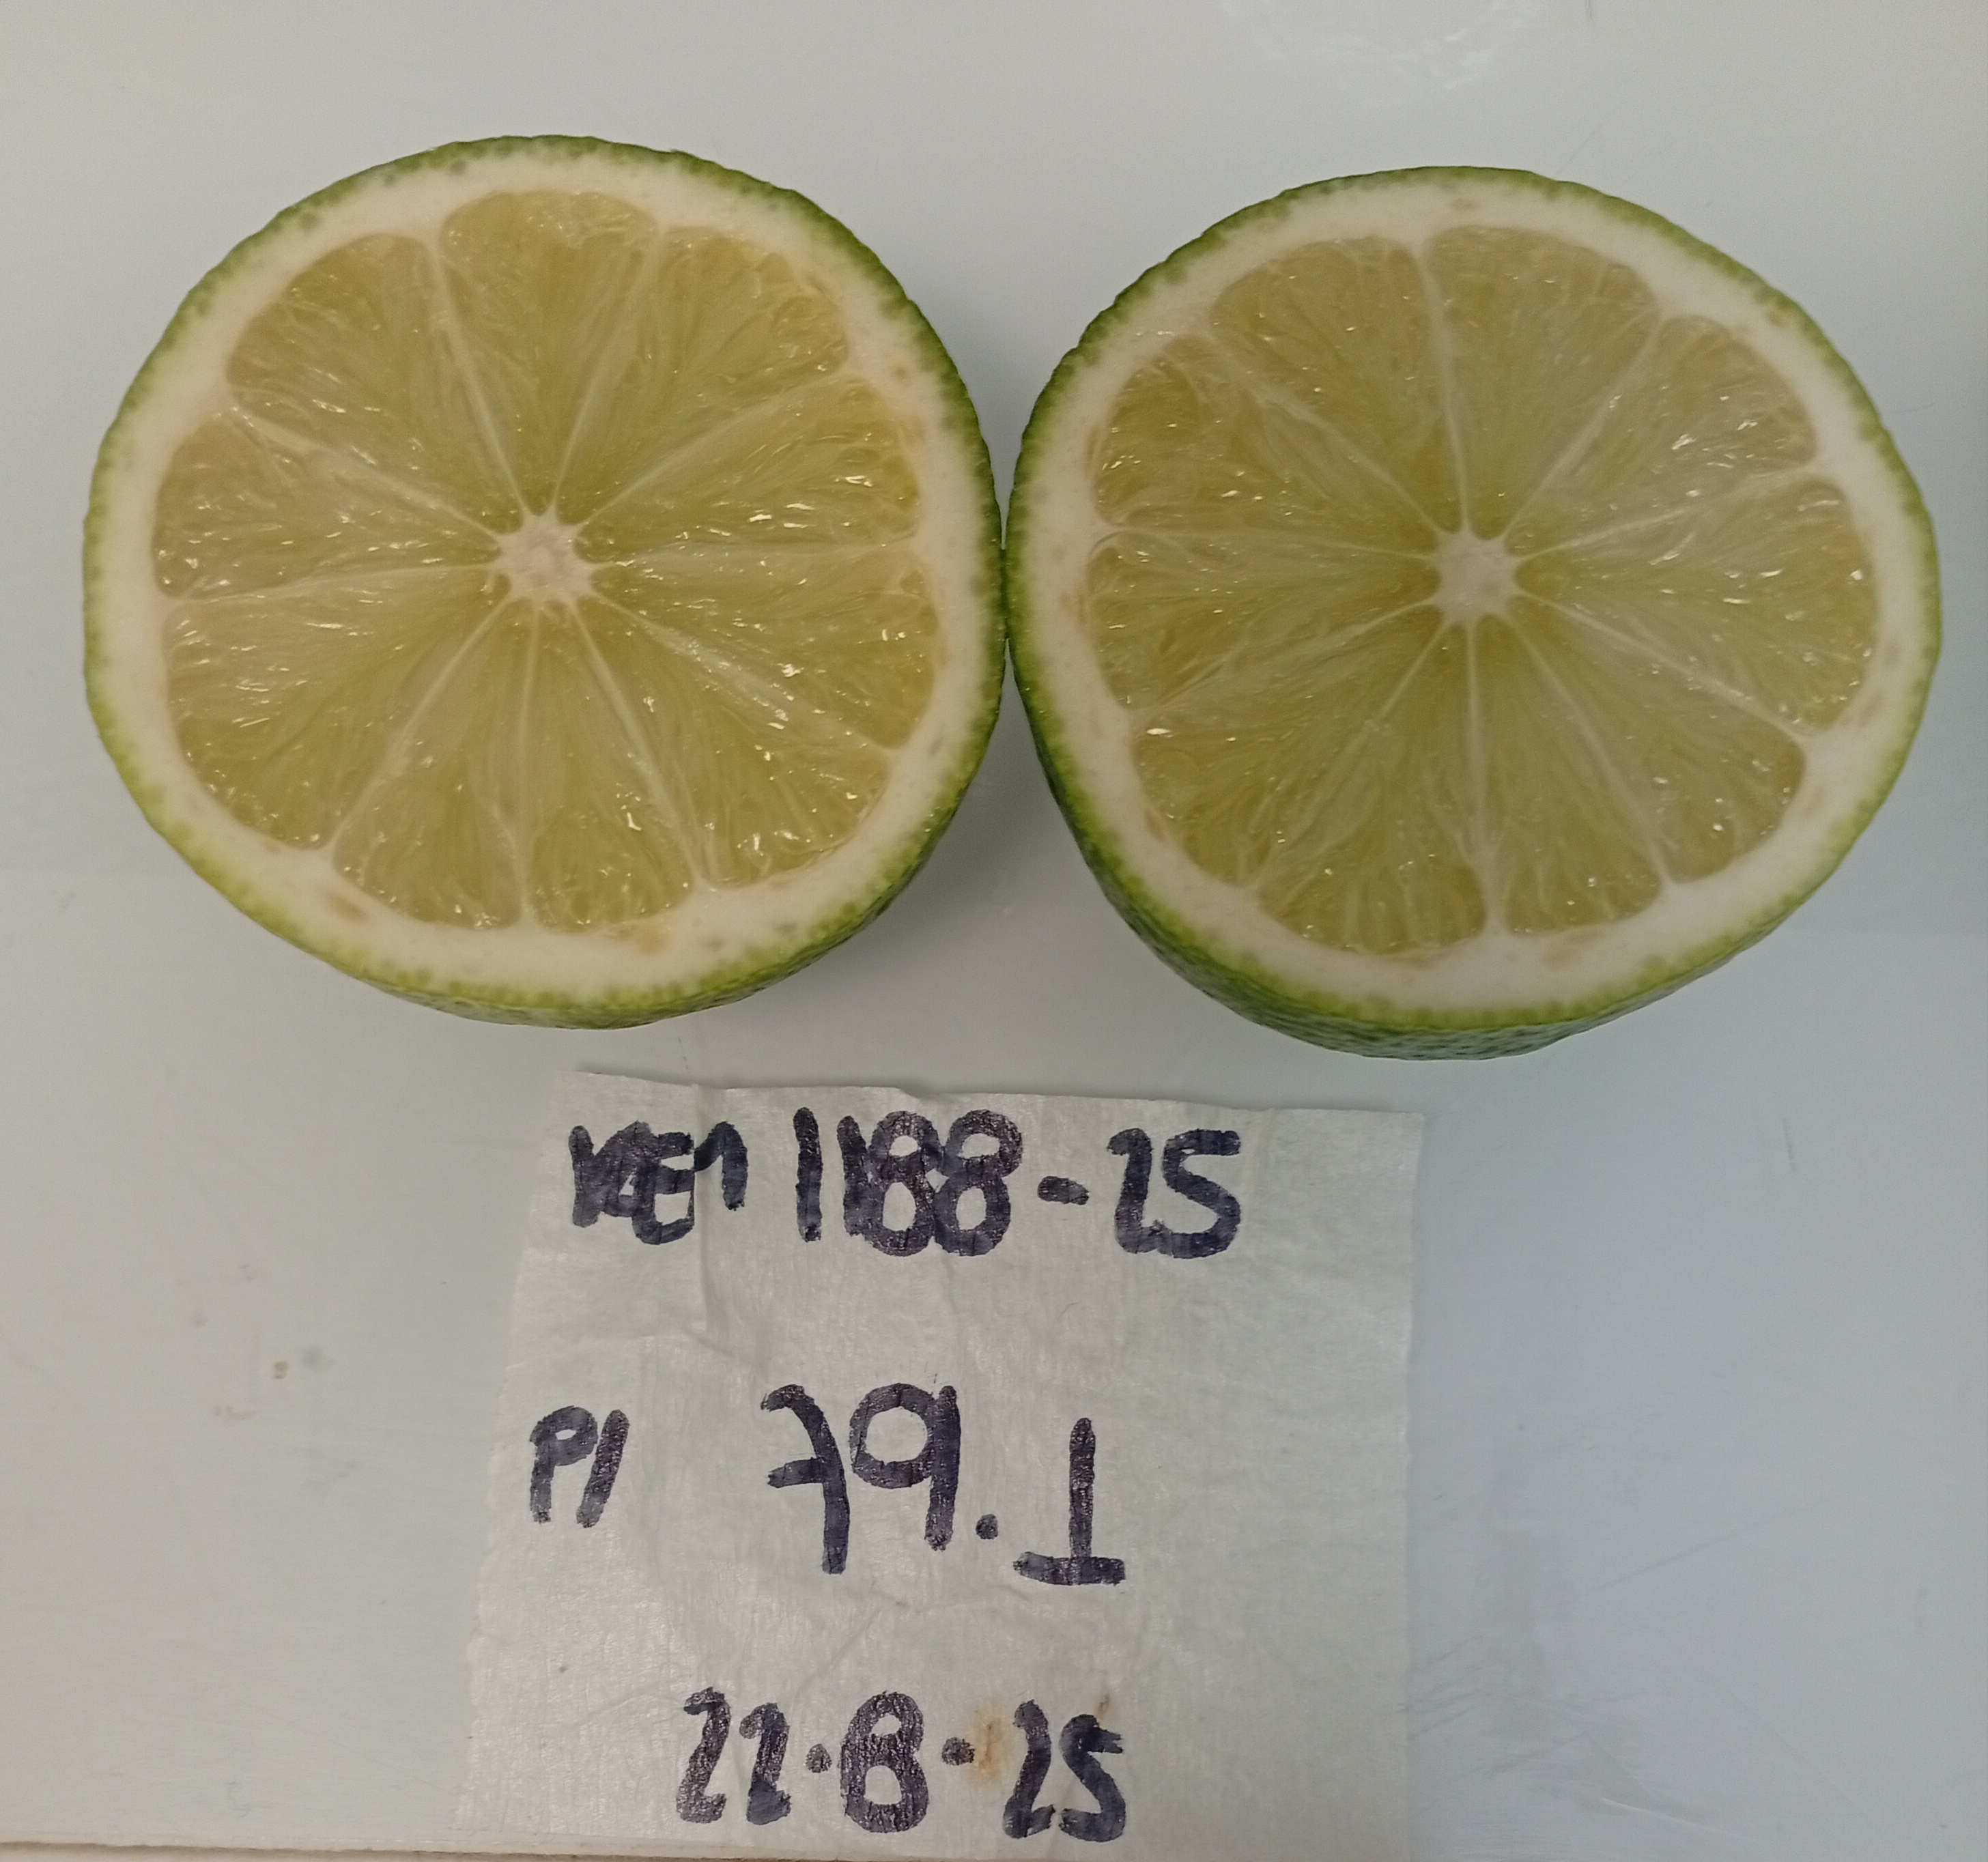 KEM 1188-25
P1 79.1
22.8.25